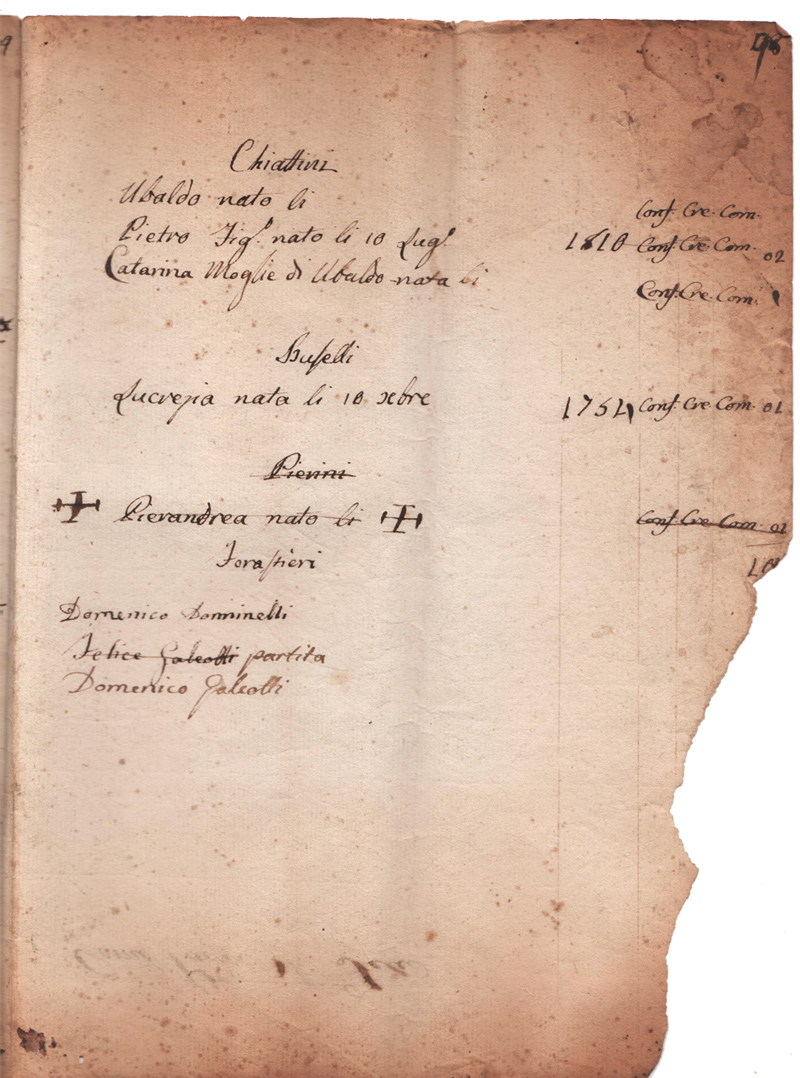 Chiattini
Ubaldo nato li Conf. Cre. Com.
Pietro Figº nato li 10 Lugº 1810 Conf. Cre. Com. 02
Catarina Moglie di Ubaldo nata li Conf. Cre. Com.
Lucrezia nata li 10 xbre 1751 Conf. Cre. Com. 01
Pierini
Pierandrea nato li Conf. Cre. Com. 01
Forastieri
Domenico Donninelli
Felice Galeotti partita
Domenico Galeotti